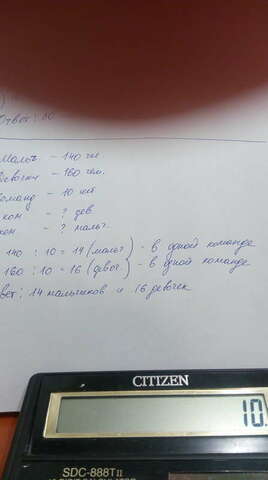 Ответ: 10
Мальч - 140 чел
Девочки - 160 чел.
Команд - 10 шт
ком - ? дев
ком - ? мальч.
140 : 10 = 14 (мальч) - в одной команде
160 : 10 = 16 (девоч) - в одной команде
Ответ: 14 мальчиков и 16 девочек
CITIZEN
10.
SDC-888TII